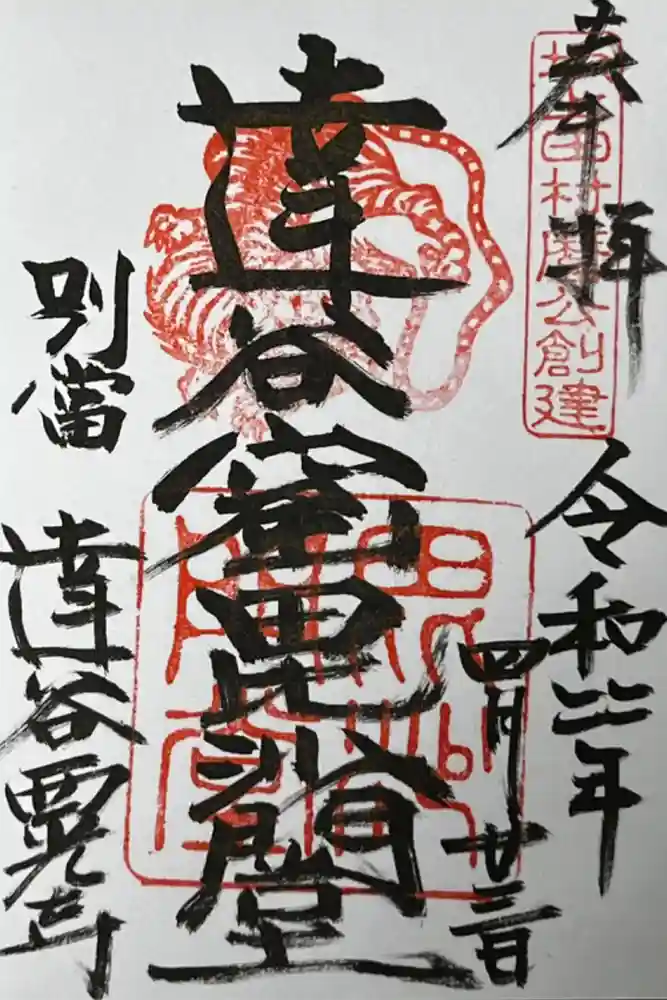 奉拝
坂上田村麿公創建
令和二年
四月廿三日
達谷窟毘沙門堂
毘沙
門堂
別當
達谷西光寺